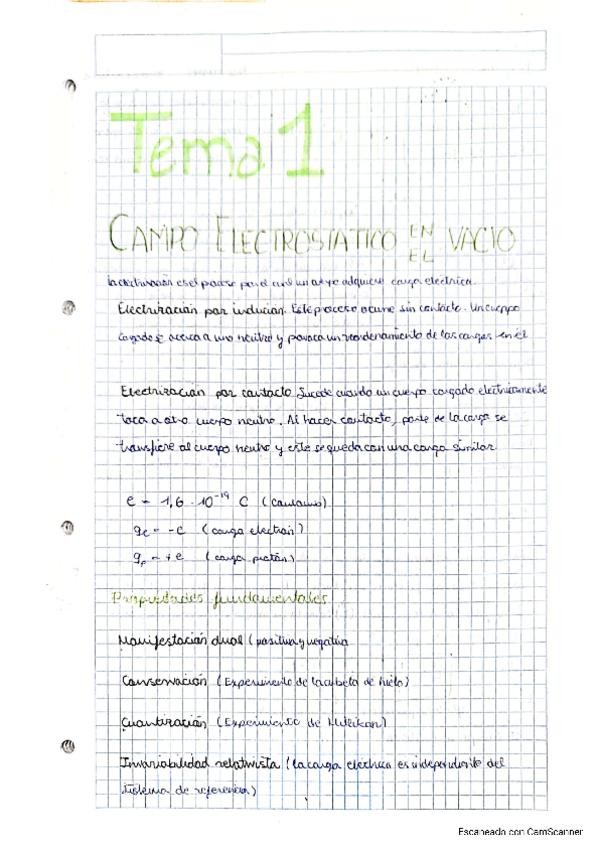 Tema 1
CAMPO ELECTROSTATICO EN EL VACIO
la electrización es el proceso por el cual un cuerpo adquiere carga electrica.
Electrización por inducian. Este proceso ocurre sin contacto. Un cuerpo
cargado se acerca a uno neutro y provoca un reordenamiento de las cargas en él
Electrización por contacto Sucede cuando un cuerpo cargado electricamente
toca a otro cuerpo neutro. Al hacer contacto, parte de la carga se
transfiere al cuerpo neutro y este se queda con una carga similar
e = 1,6 · 10⁻¹⁹ C (Coulomb)
= -e (carga electrón)
qₚ = +e (carga protón)
Propiedades fundamentales
Manifestación dual (positiva y negativa
Conservación (Experimento de la cubeta de hielo)
Cuantización (Experimento de Millikan)
Invariabilidad relativista (la carga eléctrica es independiente del
sistema de referencia)
Escaneado con CamScanner